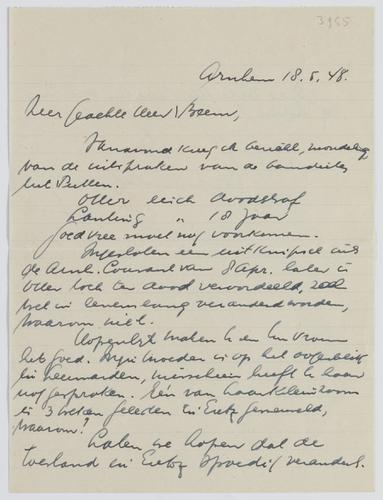 3955
Arnhem 18.5.'48.
Zeer Geachte Heer Boem,
Vanavond kreeg ik bericht, mondeling
van de uitspraken van de bandieten
uit Putten.
Otter eisch doodstraf
Lanting " 18 jaar
Goedvree moet nog voorkomen.
Ingesloten een uitknipsel uit
de Arnh. Courant van 8 Apr. later is
Otter toch ter dood veroordeeld, zal
wel in levenslang veranderd worden,
waarom niet.
Hopenlijk maken U en Uw vrouw
het goed. Mijn moeder is op het oogenblik
in Leeuwarden, misschien heeft U haar
nog gesproken. Één van haar kleinzoons
is 3 weken geleden in gesneuveld,
waarom?
Laten we hopen dat de
toestand in spoedig verandert.